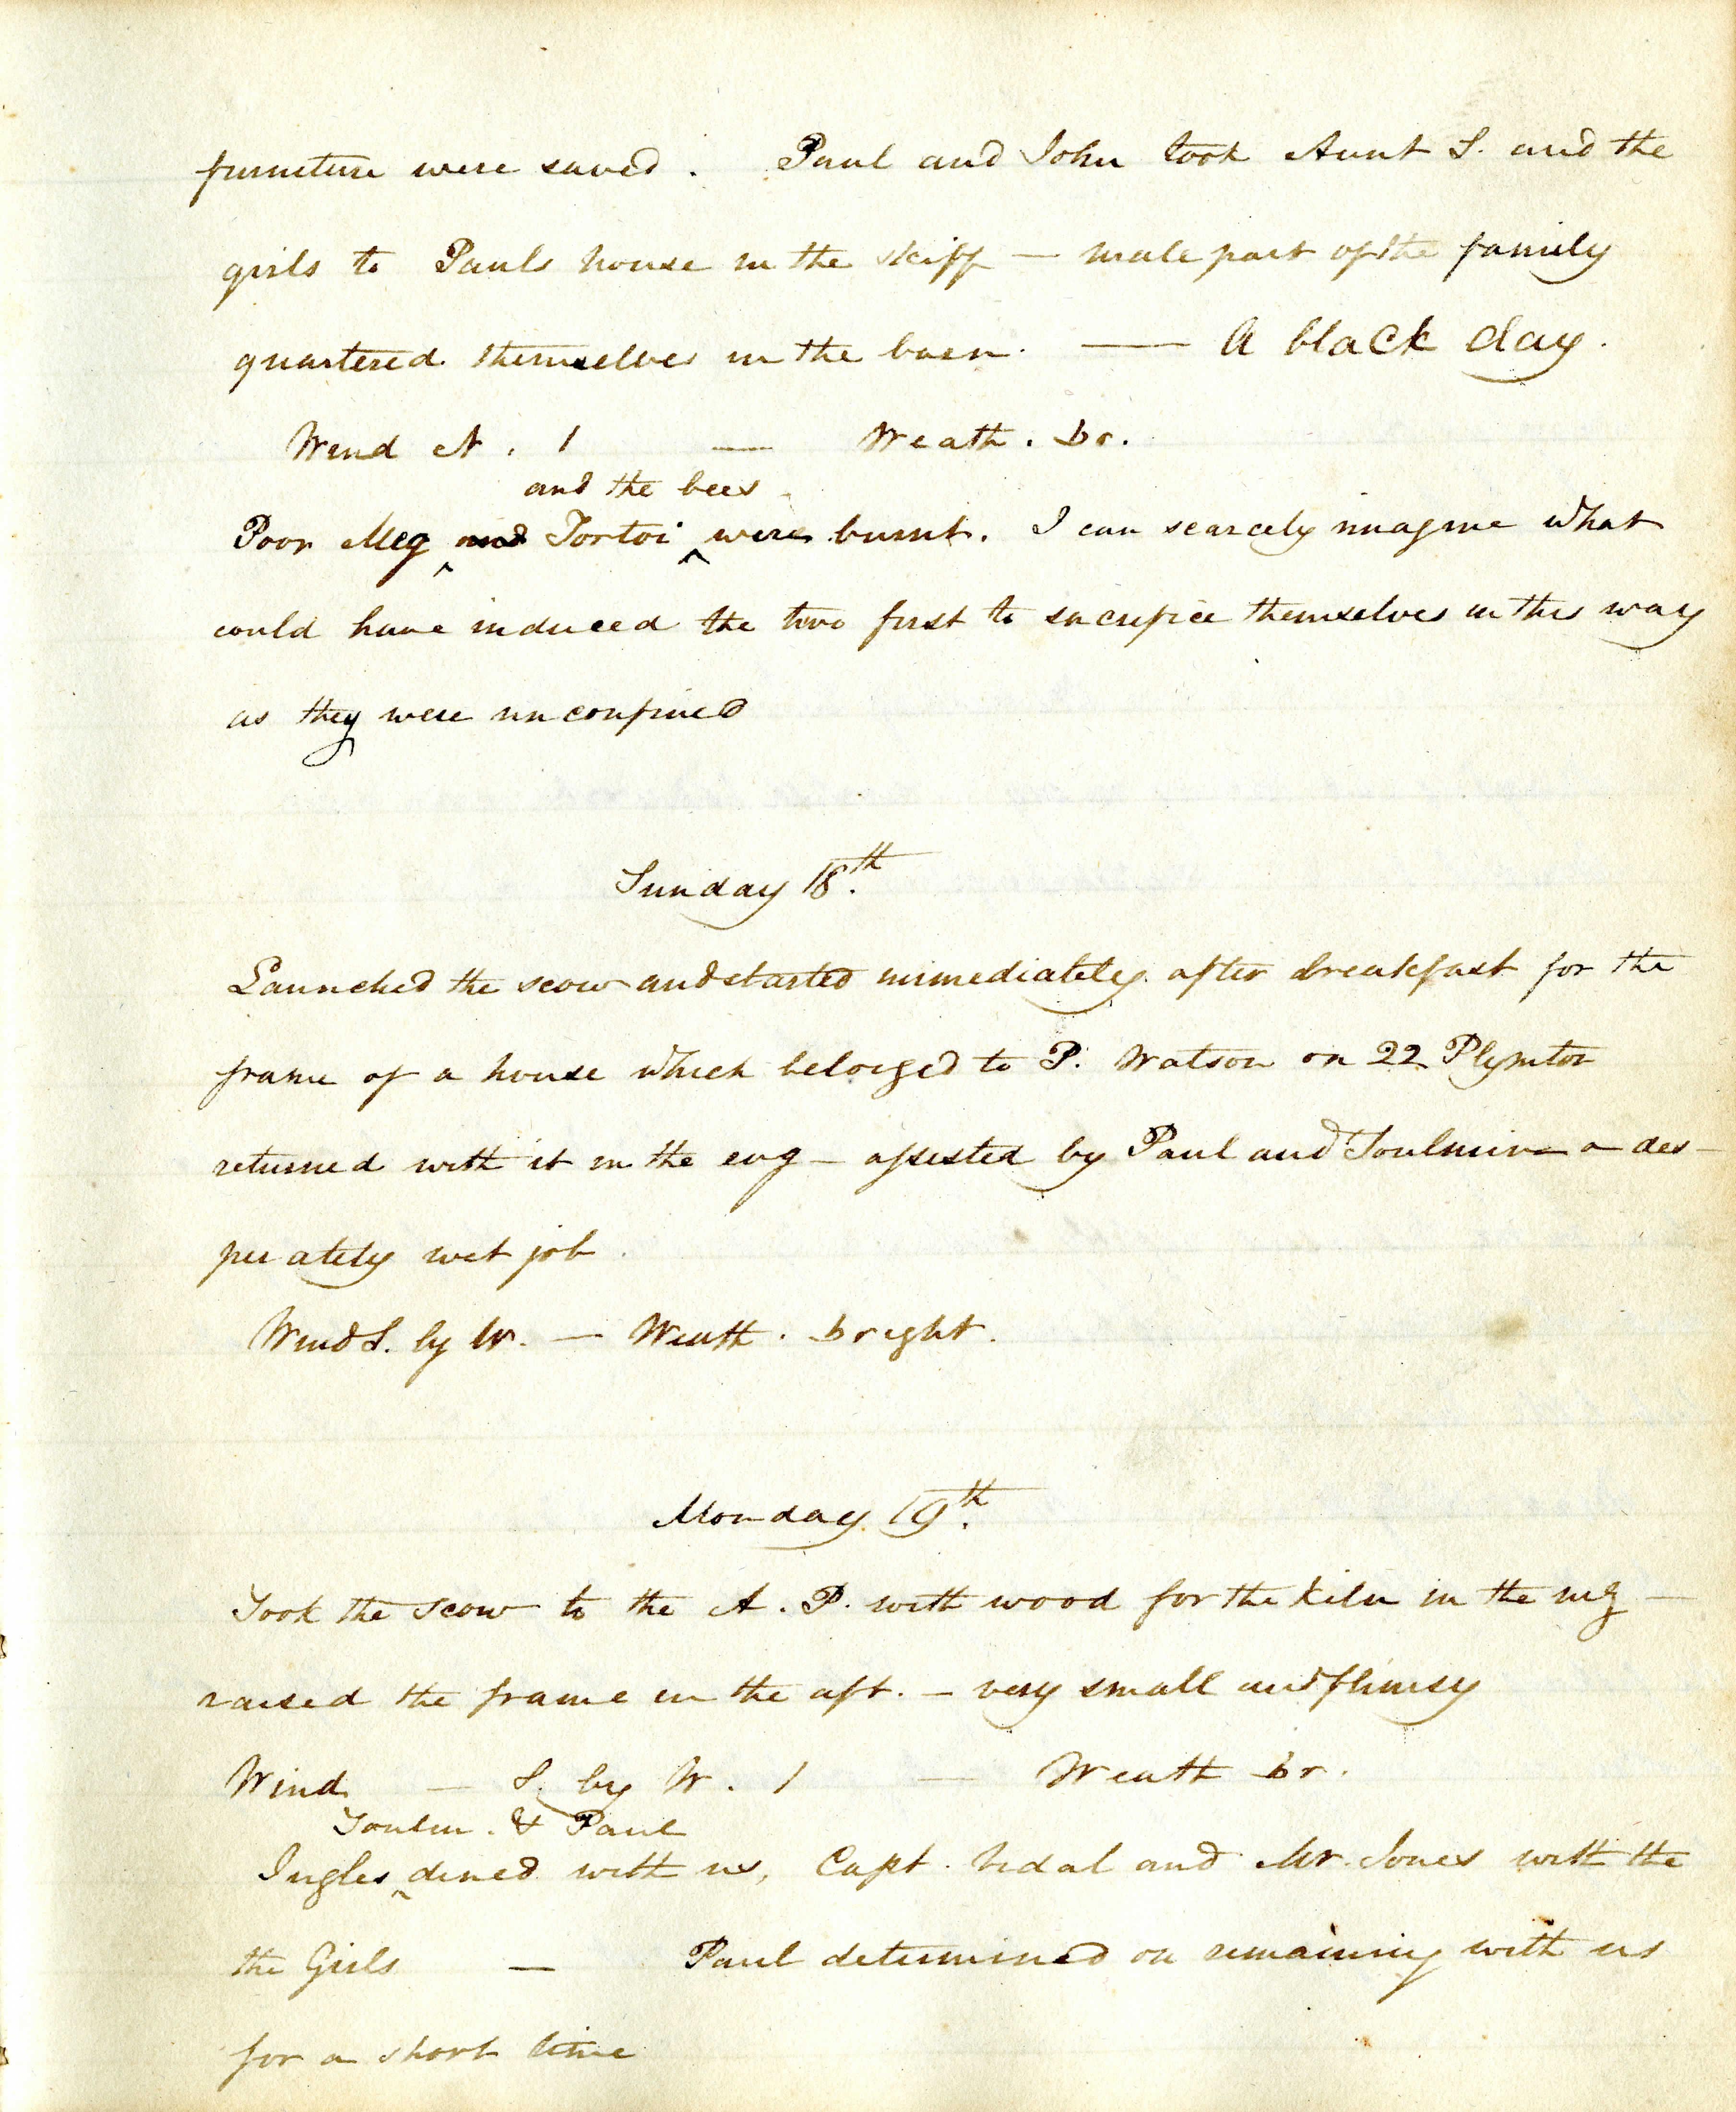 furniture were saved. Paul and John took Aunt S. and the
girls to Pauls house in the skiff — male part of the family
quartered themselves in the barn. — A black day.
Wind N. 1 — Weath. br.
and the bees
Poor Meg and Tortoi were burnt. I can scarcely imagine what
could have induced the two first to sacrifice themselves in this way
as they were unconfined
Sunday 18th.
Launched the scow and started immediately after breakfast for the
frame of a house which belonged to P. Watson on 22 Plymton
returned with it in the evg — assisted by Paul and Toulmin a des-
perately wet job
Wind S. by W. — Weath. bright.
Monday 19th.
Took the scow to the A. P. with wood for the kiln in the mg —
raised the frame in the aft. — very small and flimsy
Wind — S. by W. 1 — Weath br.
Toulm. & Paul
Ingles dined with us, Capt. Vidal and Mr. Jones with the
the Girls — Paul determined on remaining with us
for a short time